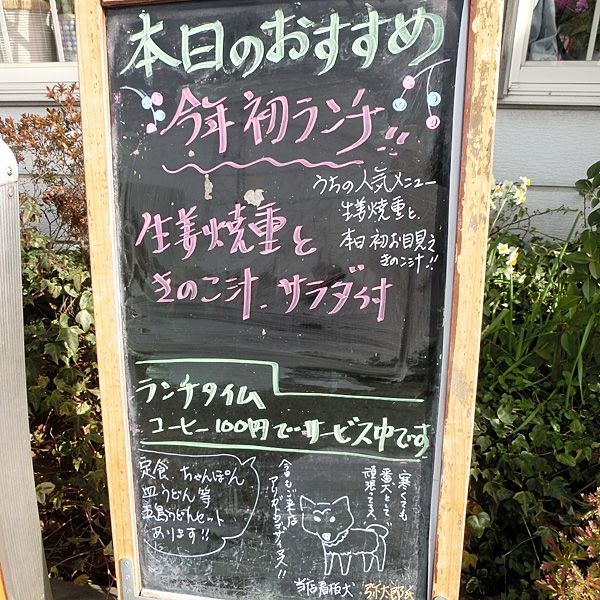 本日のおすすめ
今年初ランチ!!
うちの人気メニュー
生姜焼重と、
本日初お目見え
きのこ汁!!
生姜焼重と
きのこ汁、サラダ付
ランチタイム
コーヒー100円でサービス中です
定食、ちゃんぽん
皿うどん等
五島うどんセット
あります!!
寒くても
番犬として
頑張ってるヌ
今日もご来店
アリガトウゴザイマス!!
当店看板犬 弥太郎氏